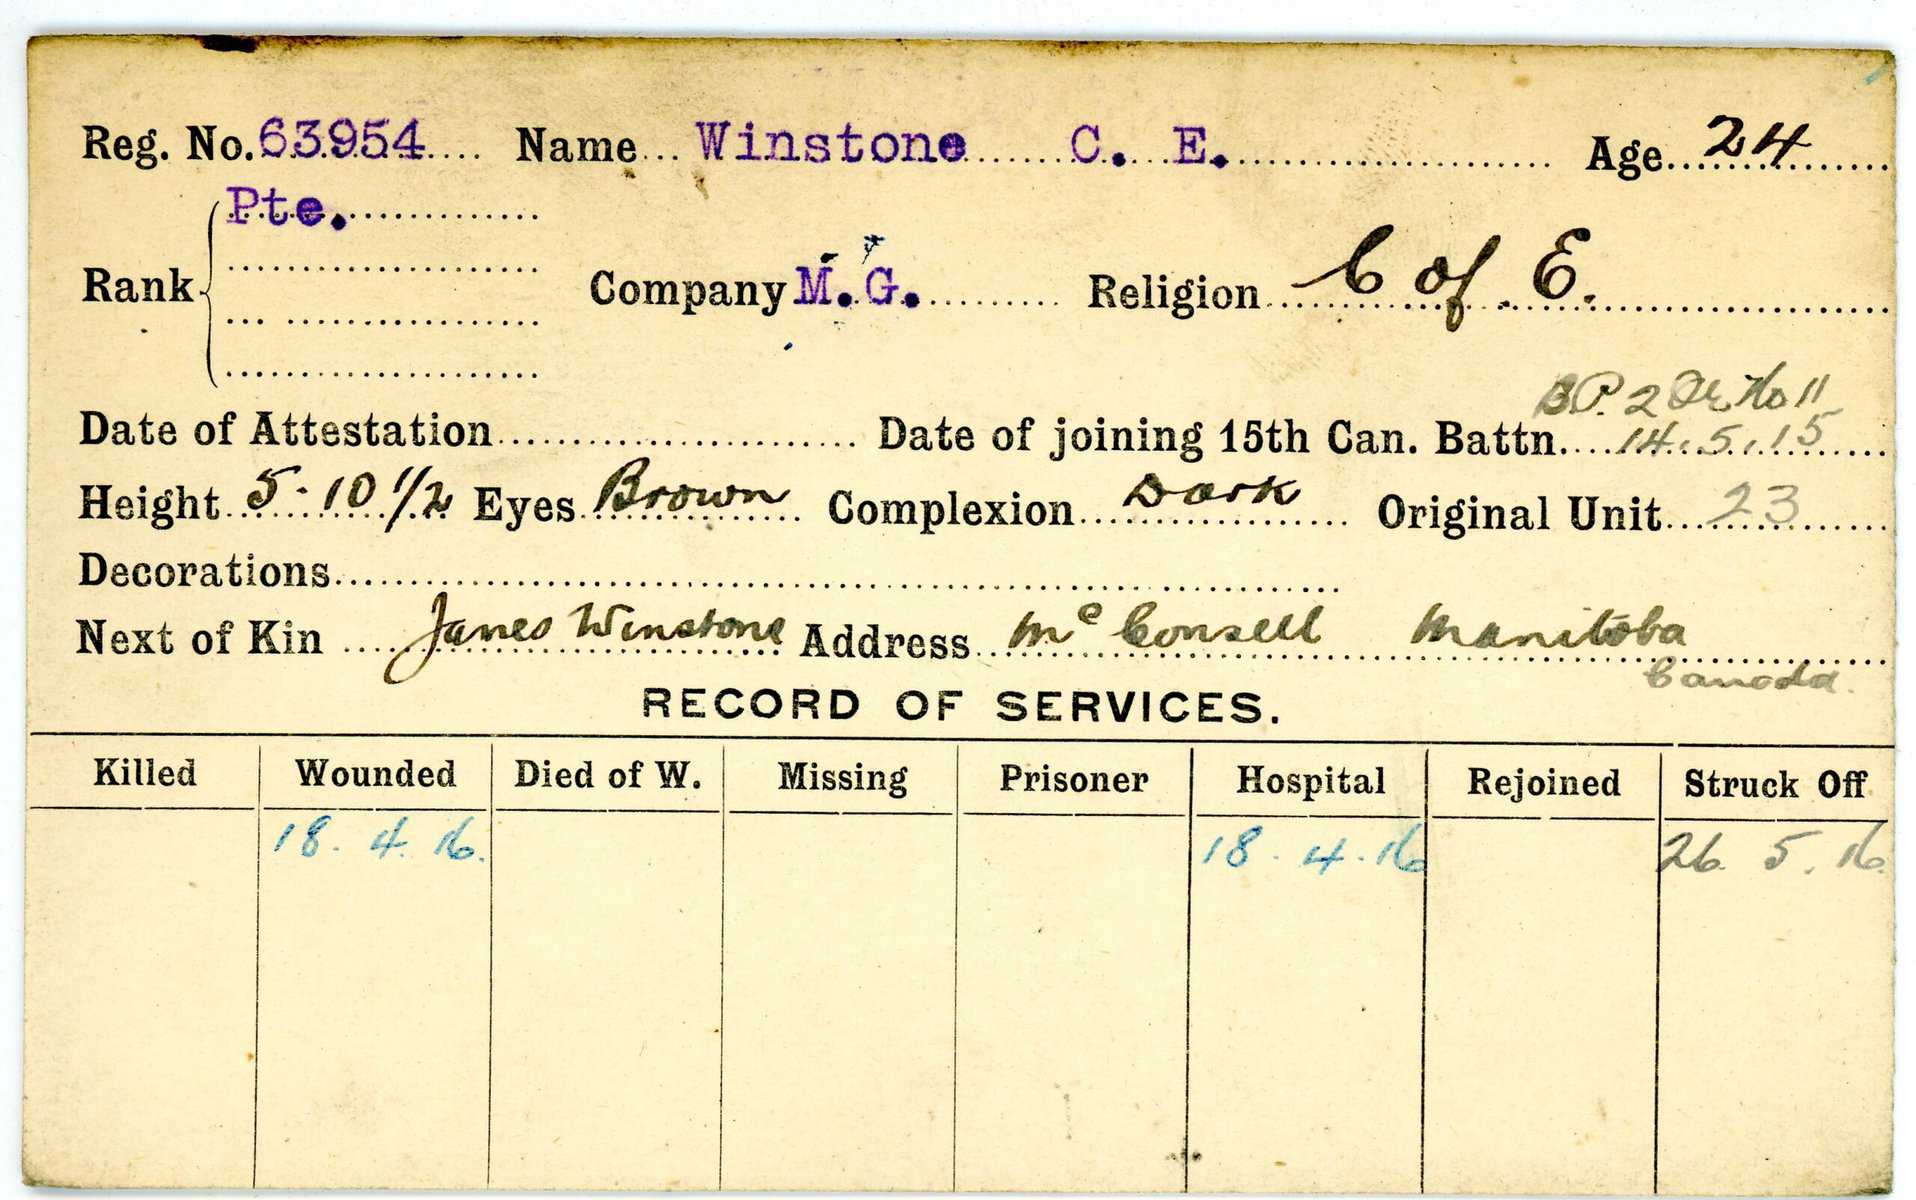 Reg. No. 63954 Name Winstone C. E. Age 24
Pte.
Rank Company M. G. Religion C of. E.
B P. 2 No 11
Date of Attestation Date of joining 15th Can. Battn. 14.5.15
Height 5-10 1/2 Eyes Brown Complexion Dark Original Unit 23
Decorations
Next of Kin James Winstone Address Mc Consell Manitoba
Canada.
RECORD OF SERVICES.
Killed Wounded Died of W. Missing Prisoner Hospital Rejoined Struck Off
18. 4. 16. 18. 4. 16 26. 5. 16.